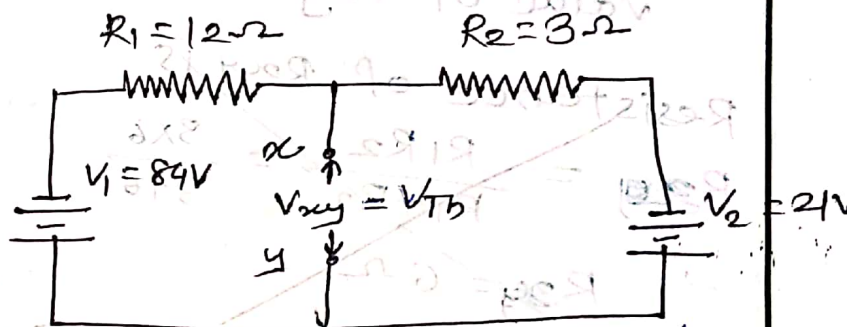 R₁ = 12Ω R₂ = 3Ω
x
V₁ = 84V
Vxy = VTh
V₂ = 21V
y